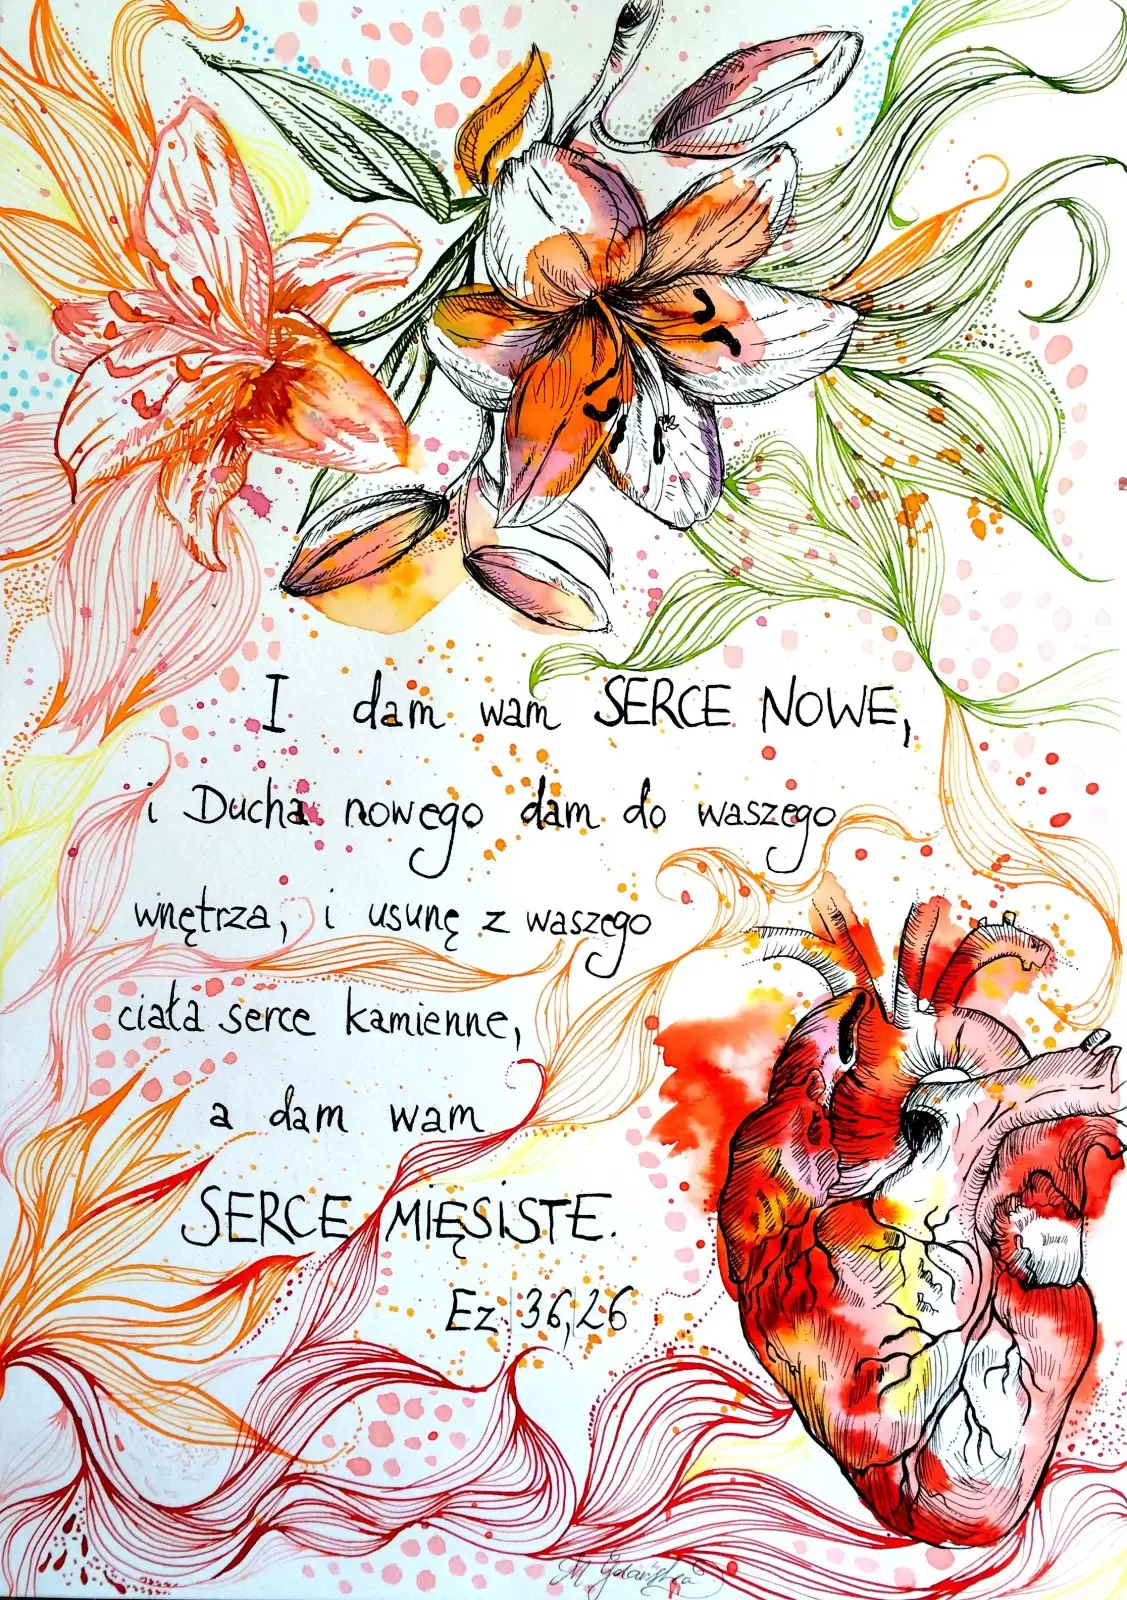 I dam wam SERCE NOWE,
i Ducha nowego dam do waszego
wnętrza, i usunę z waszego
ciała serce kamienne,
a dam wam
SERCE MIĘSISTE.
Ez 36,26